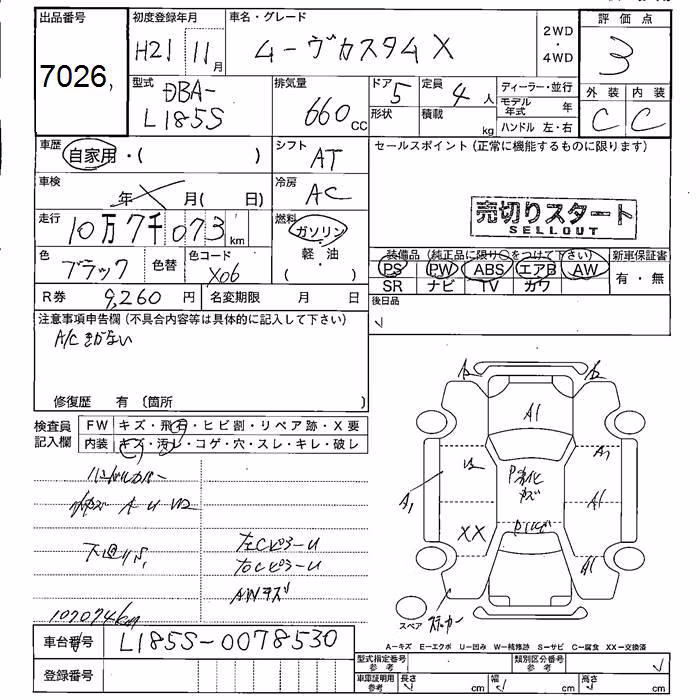 出品番号
7026,
初度登録年月
H21 11月
車名・グレード
ムーヴカスタム X
2WD
・
4WD
評価点
3
外装 内装
C C
型式
DBA-
L185S
排気量
660cc
ドア 5
形状
定員 4人
積載 kg
ディーラー・並行
モデル年式 年
ハンドル 左・右
車歴
自家用・( )
シフト
AT
セールスポイント(正常に機能するものに限ります)
車検
年 月( 日)
冷房
AC
売切りスタート
SELLOUT
走行
10万7千073km
燃料
ガソリン
軽・油
( )
色
ブラック
色替
色コード
X06
装備品(純正品に限り○をつけて下さい)
PS PW ABS エアB AW
SR ナビ TV カワ
新車保証書
有・無
R券 9,260円
名変期限 月 日
後日品
注意事項申告欄(不具合内容等は具体的に記入して下さい)
A/C きかない
修復歴 有〔箇所 〕
検査員記入欄
FW キズ・飛石・ヒビ割・リペア跡・X要
内装 キズ・汚レ・コゲ・穴・スレ・キレ・破レ
ハンドルカバー
A U W2
下回りS,
左Cピラー U
右Cピラー U
AWキズ
107074km
A2
A1
U2
A1
A1
A1
XX
A1
スペア
ステッカー
車台番号 L185S-0078530
登録番号
A-キズ E-エクボ U-凹み W-補修跡 S-サビ C-腐食 XX-交換済
型式指定番号 参考
類別区分番号 参考
車庫証明用 参考
長さ cm 幅 cm 高さ cm